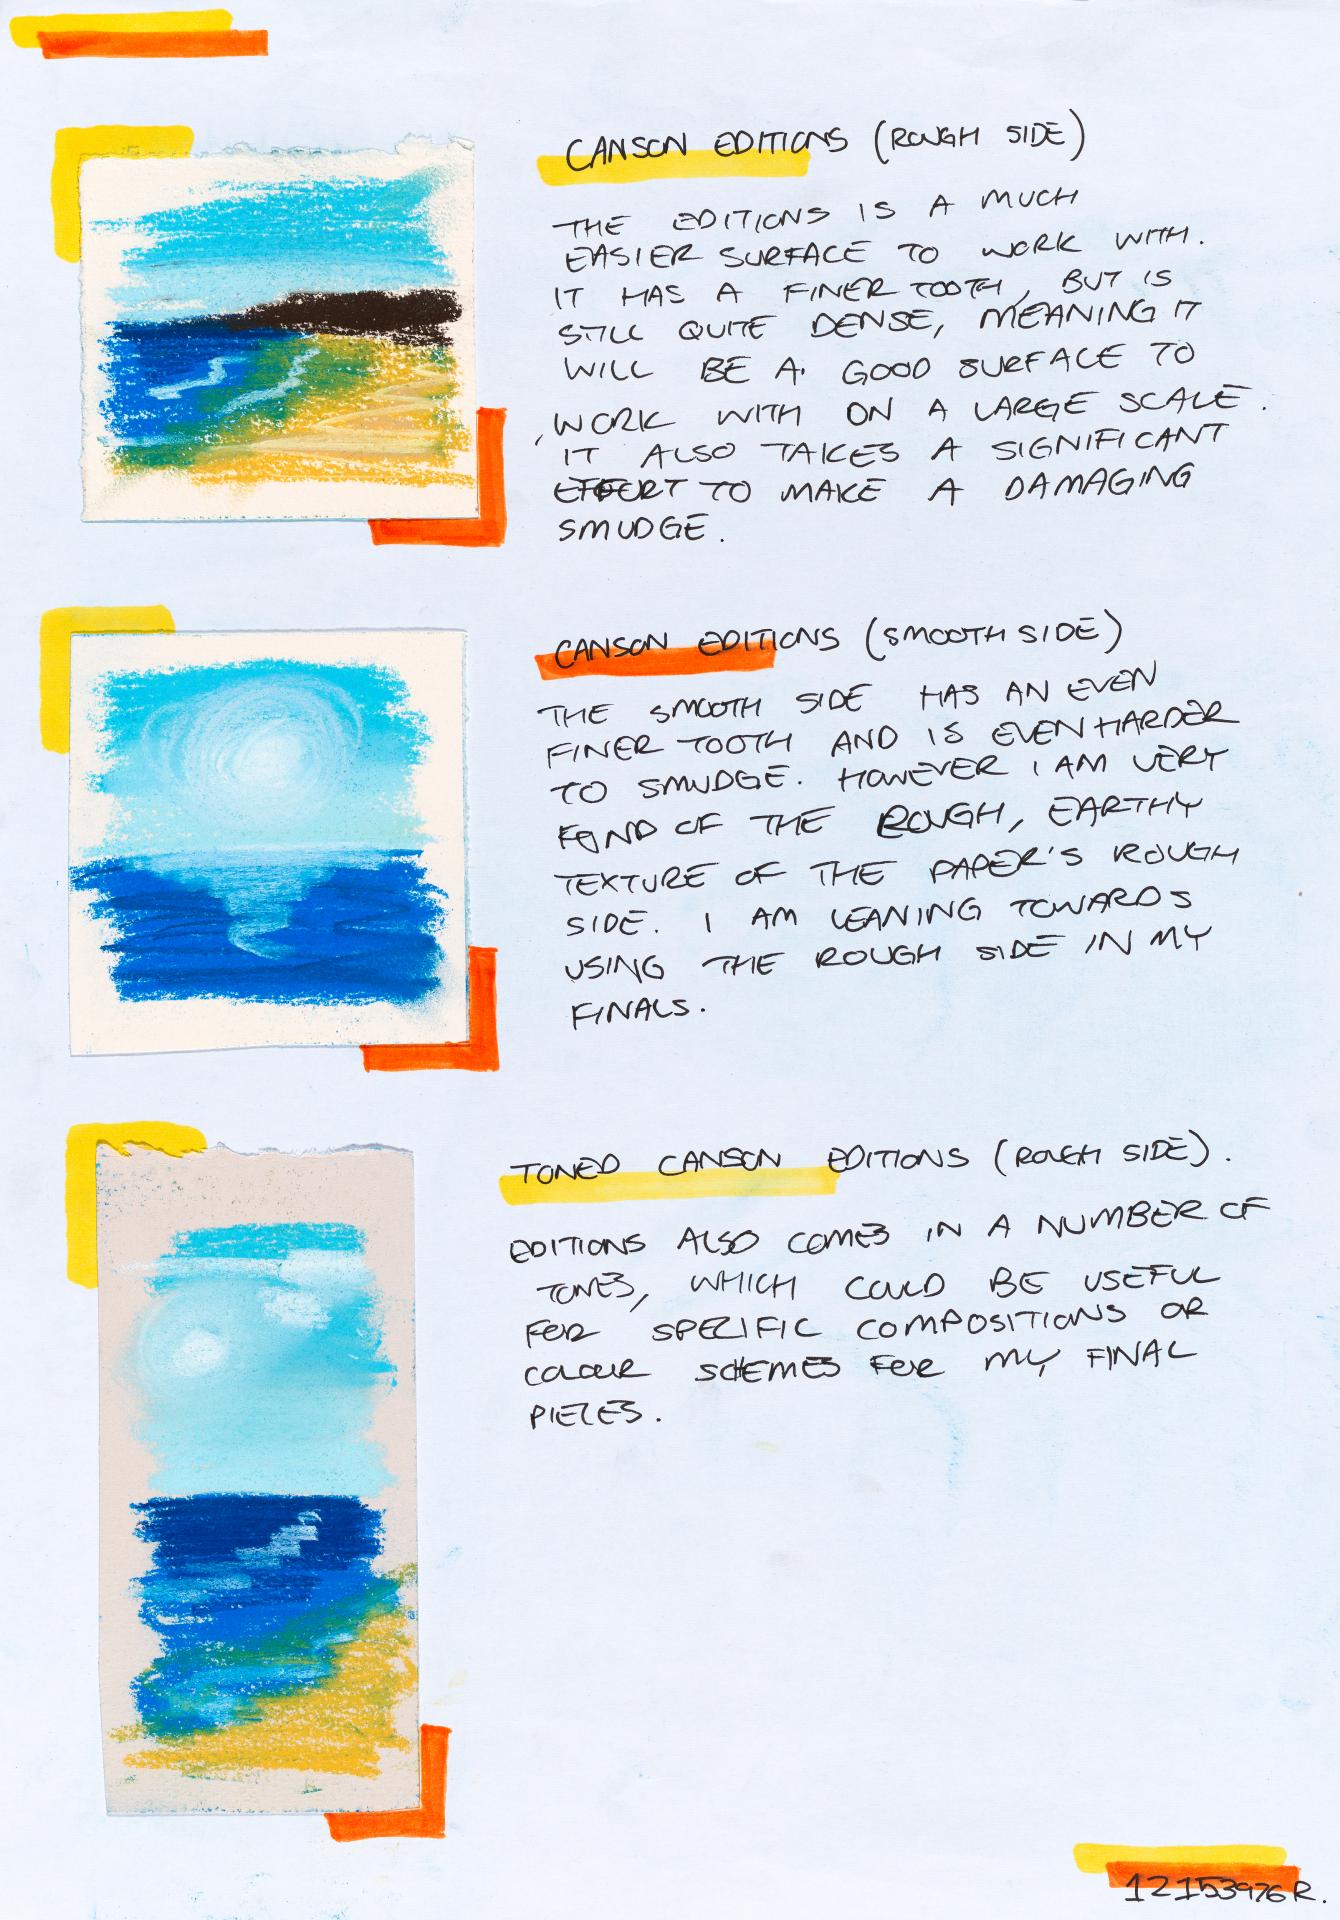 CANSON EDITIONS (ROUGH SIDE)
THE EDITIONS IS A MUCH
EASIER SURFACE TO WORK WITH.
IT HAS A FINER TOOTH, BUT IS
STILL QUITE DENSE, MEANING IT
WILL BE A GOOD SURFACE TO
WORK WITH ON A LARGE SCALE.
IT ALSO TAKES A SIGNIFICANT
EFFORT TO MAKE A DAMAGING
SMUDGE.
CANSON EDITIONS (SMOOTH SIDE)
THE SMOOTH SIDE HAS AN EVEN
FINER TOOTH AND IS EVEN HARDER
TO SMUDGE. HOWEVER I AM VERY
FOND OF THE ROUGH, EARTHY
TEXTURE OF THE PAPER'S ROUGH
SIDE. I AM LEANING TOWARDS
USING THE ROUGH SIDE IN MY
FINALS.
TONED CANSON EDITIONS (ROUGH SIDE).
EDITIONS ALSO COMES IN A NUMBER OF
TONES, WHICH COULD BE USEFUL
FOR SPECIFIC COMPOSITIONS OR
COLOUR SCHEMES FOR MY FINAL
PIECES.
12153976R.